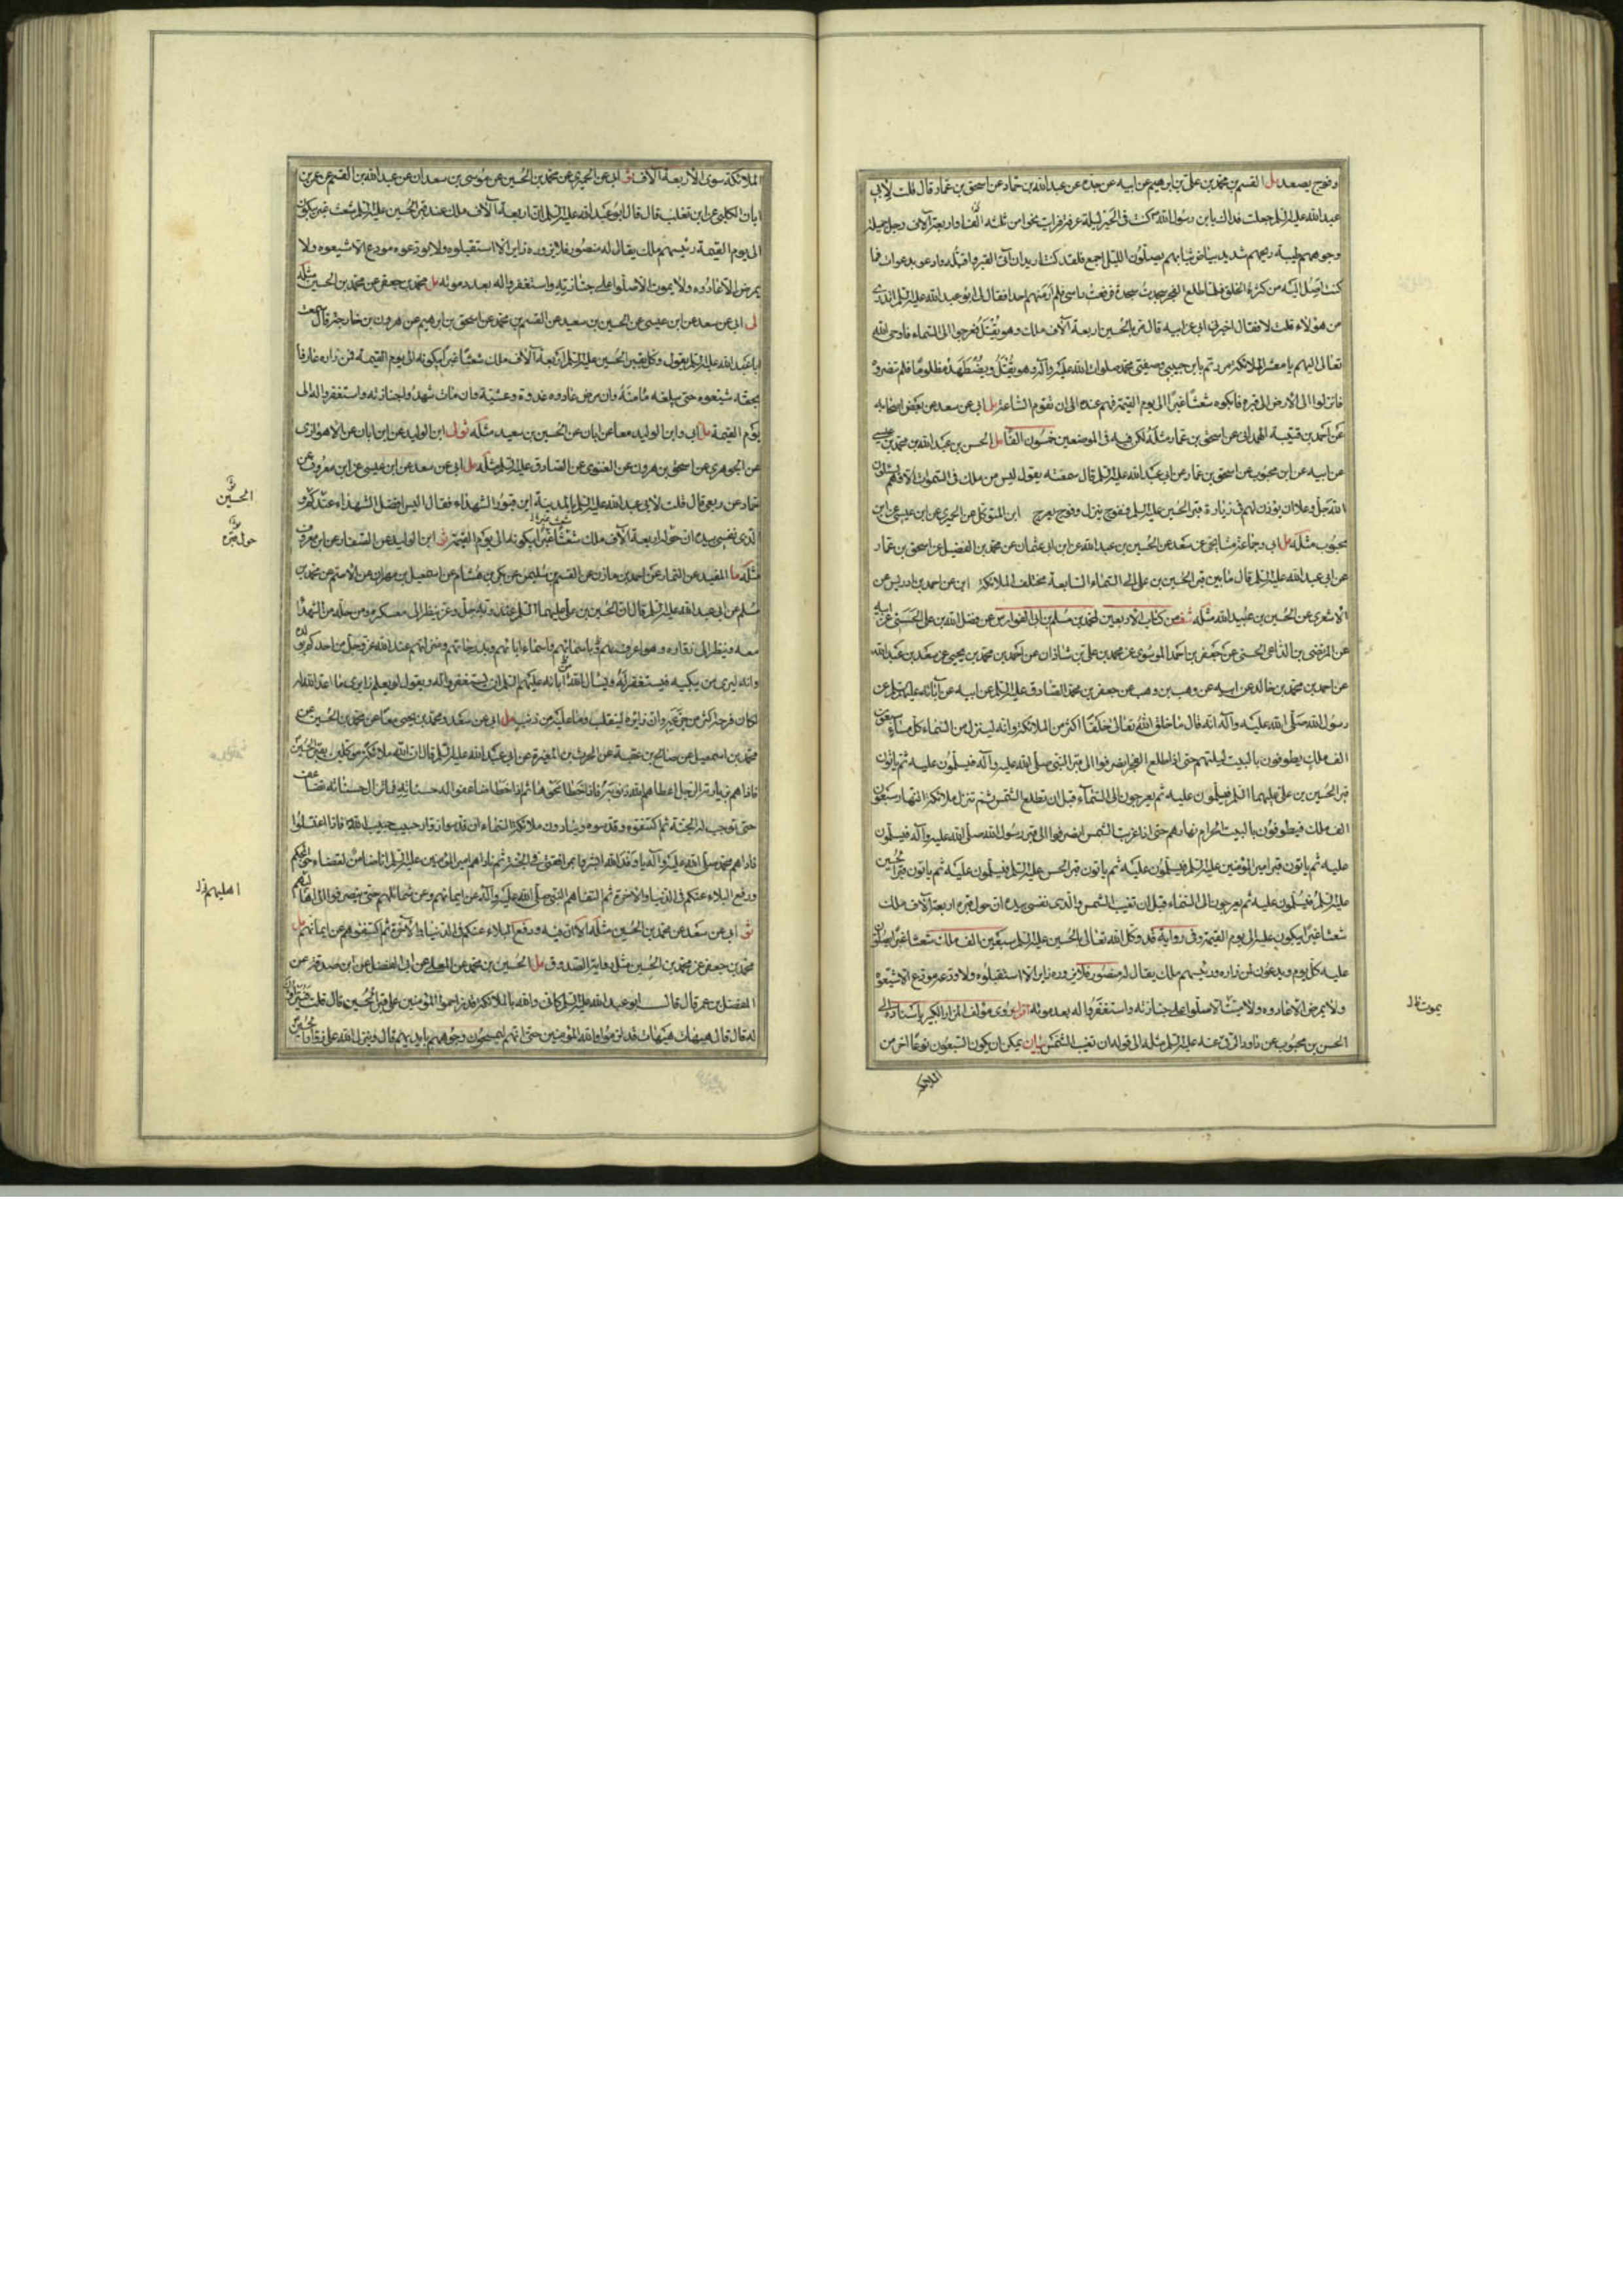 وفوج يصعد مل القسم بن محمد بن علي بن ابرهيم عن ابيه عن جده عن عبد الله بن حماد عن اسحق بن عمار قال قلت لابي
عبد الله عليه السلم جعلت فداك يا بن رسول الله كنت في الحير ليلة عرفة فرايت نحوا من ثلثه الف او اربعة آلاف رجل جميلة
وجوههم طيبة ريحهم شديد بياض ثيابهم يصلون الليل اجمع فلقد كنت اريد ان آتي القبر واقبله وادعو بدعوات فما
كنت اصل اليه من كثرة الخلق فلما طلع الفجر سجدت سجدة فرفعت راسي فلم ار منهم احدا فقال لي ابو عبد الله عليه السلم اتدري
من هؤلاء قلت لا فقال اخبرني ابي عن ابيه قال مر بالحسين اربعة آلاف ملك وهو يقتل فعرجوا الى السماء فاوحى الله
تعالى اليهم يا معشر الملائكة مررتم بابن حبيبي وصفيي محمد صلوات الله عليه وآله وهو يقتل ويضطهد مظلوما فلم تنصروه
فانزلوا الى الارض الى قبره فابكوه شعثا غبرا الى يوم القيمة فهم عنده الى ان تقوم الساعة مل ابي عن سعد عن بعض اصحابه
عن احمد بن قتيبة الهمداني عن اسحق بن عمار مثله لكن فيه في الموضعين خمسون الفا مل الحسن بن عبد الله بن محمد بن عيسى
عن ابيه عن ابن محبوب عن اسحق بن عمار عن ابي عبد الله عليه السلم قال سمعته يقول ليس من ملك في السموات الا وهم يسئلون
الله جل وعلا ان يؤذن لهم في زيارة قبر الحسين عليه السلم ففوج ينزل وفوج يعرج ابن المتوكل عن الحميري عن ابن عيسى عن ابن
محبوب مثله مل ابي وجماعة مشايخي عن سعد عن الحسين بن عبد الله عن ابن ابي عثمان عن محمد بن الفضيل عن اسحق بن عمار
عن ابي عبد الله عليه السلم قال ما بين قبر الحسين بن علي الى السماء السابعة مختلف الملائكة ابي عن احمد بن ادريس عن
الاشعري عن الحسين بن عبيد الله مثله شف من كتاب الاربعين لمحمد بن مسلم بن ابي الفوارس عن فضل الله بن علي الحسني عن ابيه
عن المرتضى بن الداعي الحسني عن جعفر بن احمد الموسوي عن محمد بن علي بن شاذان عن احمد بن محمد بن يحيى عن سعد بن عبد الله
عن احمد بن محمد بن خالد عن ابيه عن وهب بن وهب عن جعفر بن محمد الصادق عليه السلم عن ابيه عن آبائه عليهم السلم عن
رسول الله صلى الله عليه وآله انه قال ما خلق الله تعالى خلقا اكثر من الملائكة وانه لينزل من السماء كل مساء سبعون
الف ملك يطوفون بالبيت ليلتهم حتى اذا طلع الفجر انصرفوا الى قبر النبي صلى الله عليه وآله فيسلمون عليه ثم ياتون
قبر الحسين بن علي عليهما السلم فيسلمون عليه ثم يعرجون الى السماء قبل ان تطلع الشمس ثم تنزل ملائكة النهار سبعون
الف ملك فيطوفون بالبيت الحرام نهارهم حتى اذا غربت الشمس انصرفوا الى قبر رسول الله صلى الله عليه وآله فيسلمون
عليه ثم ياتون قبر امير المؤمنين عليه السلم فيسلمون عليه ثم ياتون قبر الحسن عليه السلم فيسلمون عليه ثم ياتون قبر الحسين
عليه السلم فيسلمون عليه ثم يعرجون الى السماء قبل ان تغيب الشمس والذي نفسي بيده ان حول قبره اربعة آلاف ملك
شعثا غبرا يبكون عليه الى يوم القيمة وفي رواية قد وكل الله تعالى بالحسين عليه السلم سبعين الف ملك شعثا غبرا يصلون
عليه كل يوم ويدعون لمن زاره ورئيسهم ملك يقال له منصور فلا يزوره زاير الا استقبلوه ولا ودعه مودع الا شيعوه
ولا يمرض الا عادوه ولا ميتا الا صلوا على جنازته واستغفروا له بعد موته اقول روى مؤلف المزار الكبير باسناده الى
الحسن بن محبوب عن داود الرقي عنه عليه السلم مثله الى قوله ان تغيب الشمس بيان يمكن ان يكون السبعون نوعا اخر من
الملائكة
يموت ظ
الملائكة سوى الاربعة الاف ثو ابي عن الحميري عن محمد بن الحسين عن موسى بن سعدان عن عبد الله بن القسم عن عمر بن
ابان الكلبي عن ابن تغلب قال قال ابو عبد الله عليه السلم ان اربعة آلاف ملك عند قبر الحسين عليه السلم شعث غبر يبكونه
الى يوم القيمة رئيسهم ملك يقال له منصور فلا يزوره زاير الا استقبلوه ولا يودعه مودع الا شيعوه ولا
يمرض الا عادوه ولا يموت الا صلوا على جنازته واستغفروا له بعد موته مل محمد بن جعفر عن محمد بن الحسين مثله
لى ابي عن سعد عن ابن عيسى عن الحسين بن سعيد عن القسم بن محمد عن اسحق بن ابرهيم عن هرون بن خارجة قال سمعت
ابا عبد الله عليه السلم يقول وكل بقبر الحسين عليه السلم اربعة آلاف ملك شعثا غبرا يبكونه الى يوم القيمة فمن زاره عارفا
بحقه شيعوه حتى يبلغه مامنه وان مرض عادوه غدوة وعشية وان مات شهدوا جنازته واستغفروا له الى
يوم القيمة مل ابي وابن الوليد معا عن ابان عن الحسين بن سعيد مثله ثو ل ابن الوليد عن ابن ابان عن الاهوازي
عن الجوهري عن اسحق بن هرون عن الغنوي عن الصادق عليه السلم مثله مل ابي عن سعد عن ابن عيسى عن ابن معروف عن
حماد عن ربعي قال قلت لابي عبد الله عليه السلم بالمدينة اين قبور الشهداء فقال اليس افضل الشهداء عندكم و
الذي نفسي بيده ان حوله اربعة آلاف ملك شعثا غبرا يبكونه الى يوم القيمة ثو ابن الوليد عن الصفار عن ابن معروف
مثله ما المفيد عن التمار عن احمد بن مازن عن القسم بن سليمن عن بكر بن هشام عن اسمعيل بن مهران عن الاصم عن محمد بن
مسلم عن ابي عبد الله عليه السلم قال ان الحسين بن علي عليهما السلم عند ربه جل وعز ينظر الى معسكره ومن حله من الشهداء
معه وينظر الى زواره وهو اعرف بهم وباسمائهم واسماء آبائهم وبدرجاتهم ومنزلتهم عند الله عز وجل من احدكم بولده
وانه ليرى من يبكيه فيستغفر له ويسال آباءه عليهم السلم ان يستغفروا له ويقول لو يعلم زايري ما اعد الله له
لكان فرحه اكثر من جزعه وان زايره لينقلب وما عليه من ذنب مل ابي عن سعد ومحمد بن يحيى معا عن محمد بن الحسين عن
محمد بن اسمعيل عن صالح بن عقبة عن الحرث بن المغيرة عن ابي عبد الله عليه السلم قال ان لله ملائكة موكلين بقبر الحسين
فاذا هم بزيارته الرجل اعطاهم الله ذنوبه فاذا خطا محوها ثم اذا خطا ضاعفوا له حسناته فما تزال حسناته تضاعف
حتى توجب له الجنة ثم اكتنفوه وقدسوه وينادون ملائكة السماء ان قدسوا زوار حبيب حبيب الله فاذا اغتسلوا
ناداهم محمد صلى الله عليه وآله يا وفد الله ابشروا بمرافقتي في الجنة ثم ناداهم امير المؤمنين عليه السلم انا ضامن لقضاء حوائجكم
ودفع البلاء عنكم في الدنيا والاخرة ثم التقاهم النبي صلى الله عليه وآله عن ايمانهم وعن شمائلهم حتى ينصرفوا الى اهاليهم
ثو ابي عن سعد عن محمد بن الحسين مثله الا ان فيه ودفع البلاء عنكم في الدنيا والاخرة ثم اكتنفوهم عن ايمانهم مل
محمد بن جعفر عن محمد بن الحسين مثل رواية الصدوق مل الحسين بن محمد عن المعلى عن ابي الفضل عن ابن صدقة عن
المفضل بن عمر قال قال ابو عبد الله عليه السلم كاني والله بالملائكة قد زاحموا المؤمنين على قبر الحسين قال قلت فيتراؤن
له قال قال هيهات هيهات قد لزموا والله المؤمنين حتى انهم ليمسحون وجوههم بايديهم قال وينزل الله على زوار الحسين
الحسين
حول قبره
اهليهم